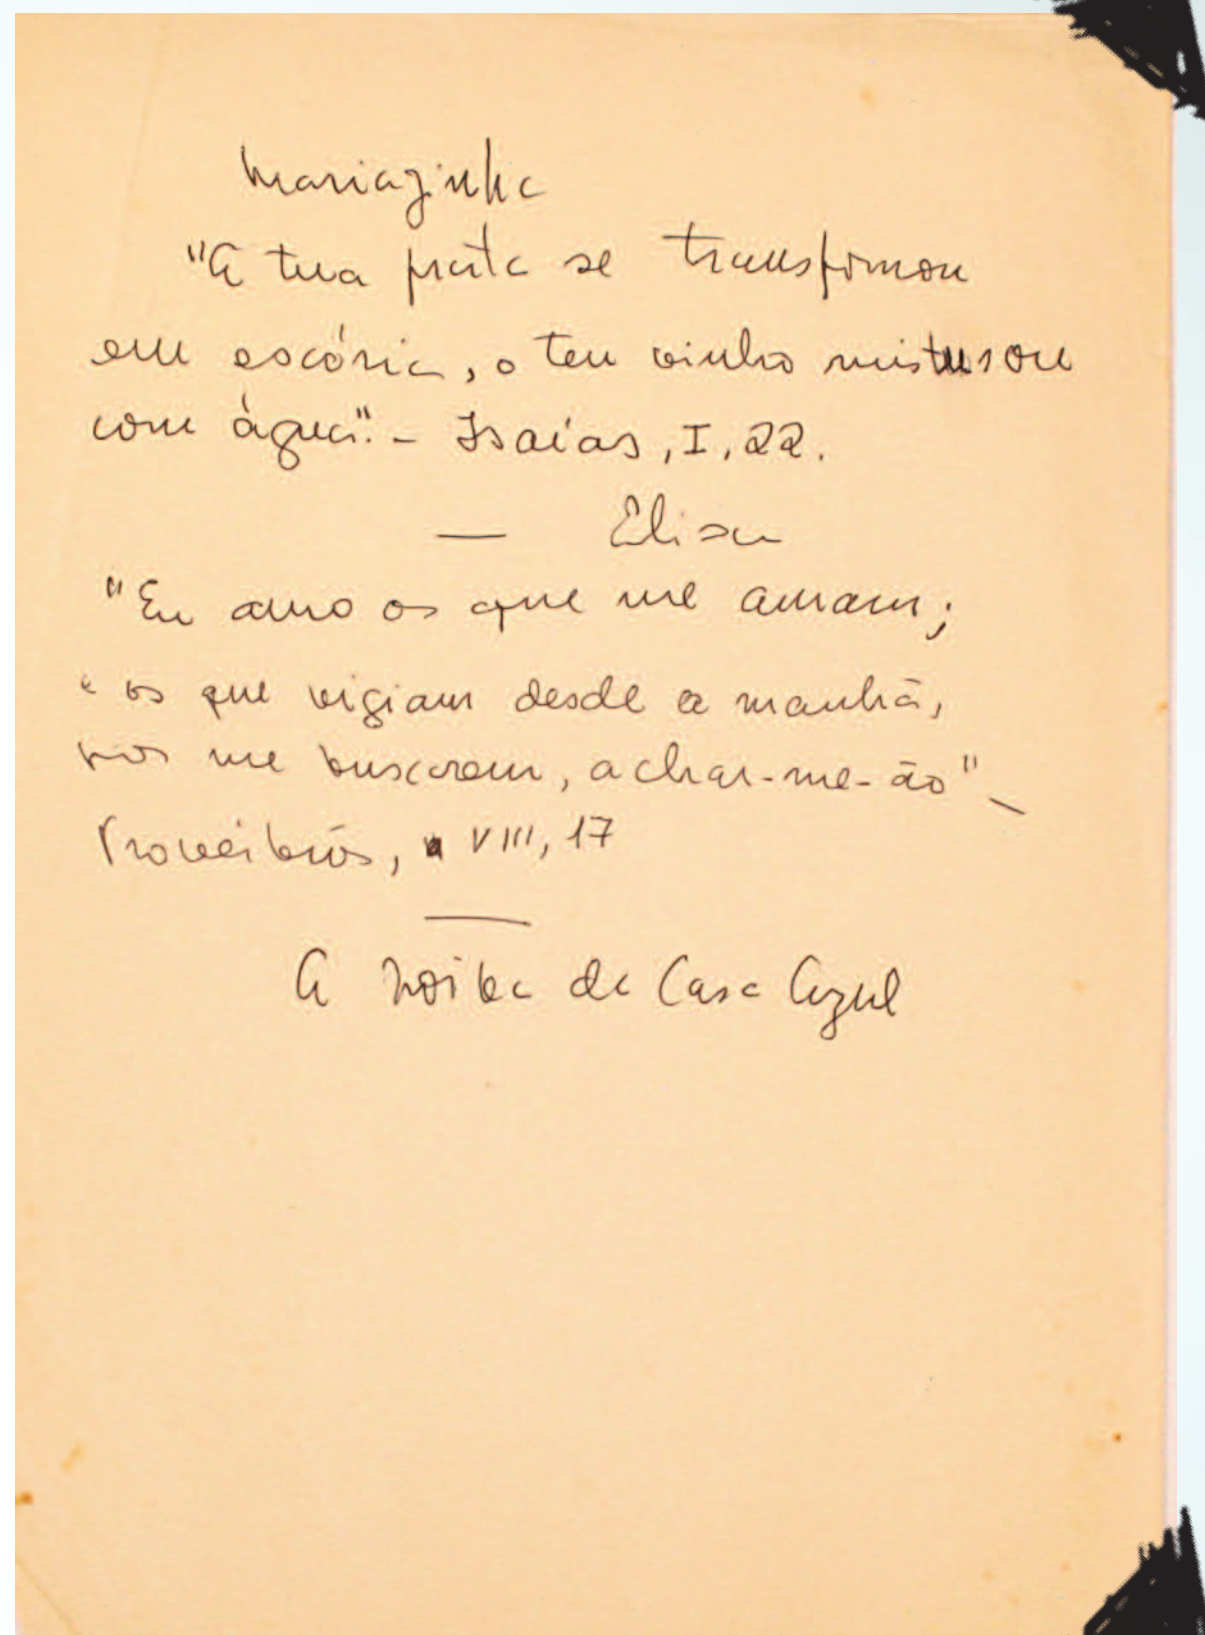 Mariazinha
"A tua prata se transformou
em escória, o teu vinho misturou
com água". - Isaías, I, 22.
— Elisa
"Eu amo os que me amam;
e os que vigiam desde a manhã,
por me buscarem, achar-me-ão" -
Provérbios, VIII, 17
A Noiva da Casa Azul